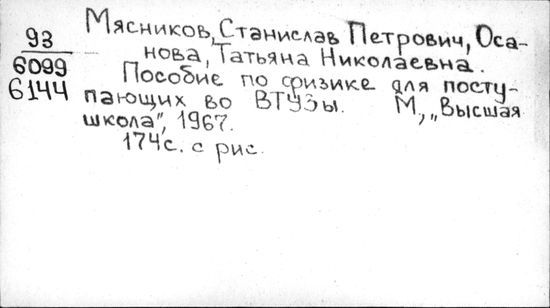 Мясников, Станислав Петрович, Оса-
93
нова, Татьяна Николаевна.
6099
Пособие по физике для посту-
6144
пающих во ВТУЗы. М, „Высшая
школа", 1967.
174с. с рис.